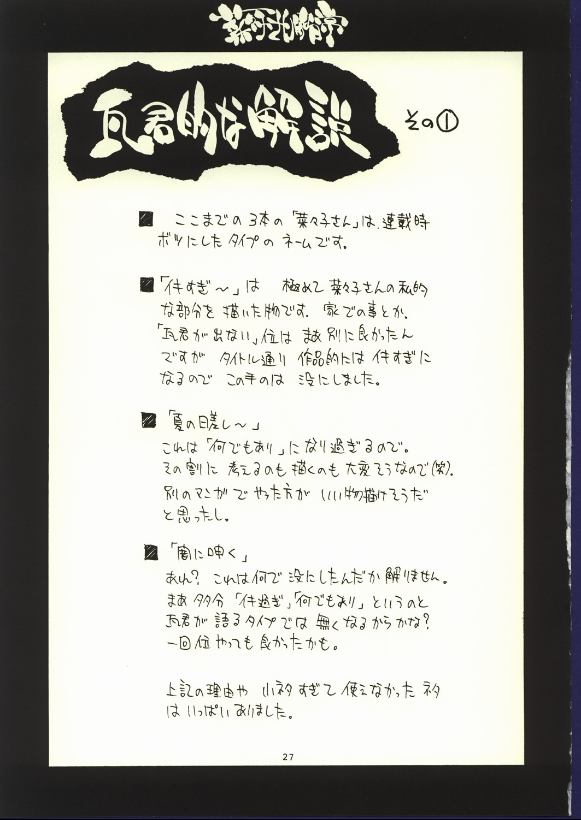 瓦君的な解説 その①
■ ここまでの3本の「菜々子さん」は、連載時
ボツにしたタイプのネームです。
■「イキすぎ～」は 極めて菜々子さんの私的
な部分を描いた物です。家での事とか、
「瓦君が出ない」位は まあ別に良かったん
ですが タイトル通り 作品的には イキすぎに
なるので この手のは 没にしました。
■「夏の日差し～」
これは「何でもあり」になり過ぎるので。
その割に 考えるのも描くのも 大変そうなので(笑)。
別のマンガで やった方が いい物描けそうだ
と思ったし。
■「闇に呻く」
あれ? これは何で 没にしたんだか解りません。
まあ 多分 「イキ過ぎ」「何でもあり」というのと
瓦君が 語るタイプでは 無くなるからかな?
一回位やっても良かったかも。
上記の理由や 小ネタすぎて 使えなかった ネタ
は いっぱいありました。
27